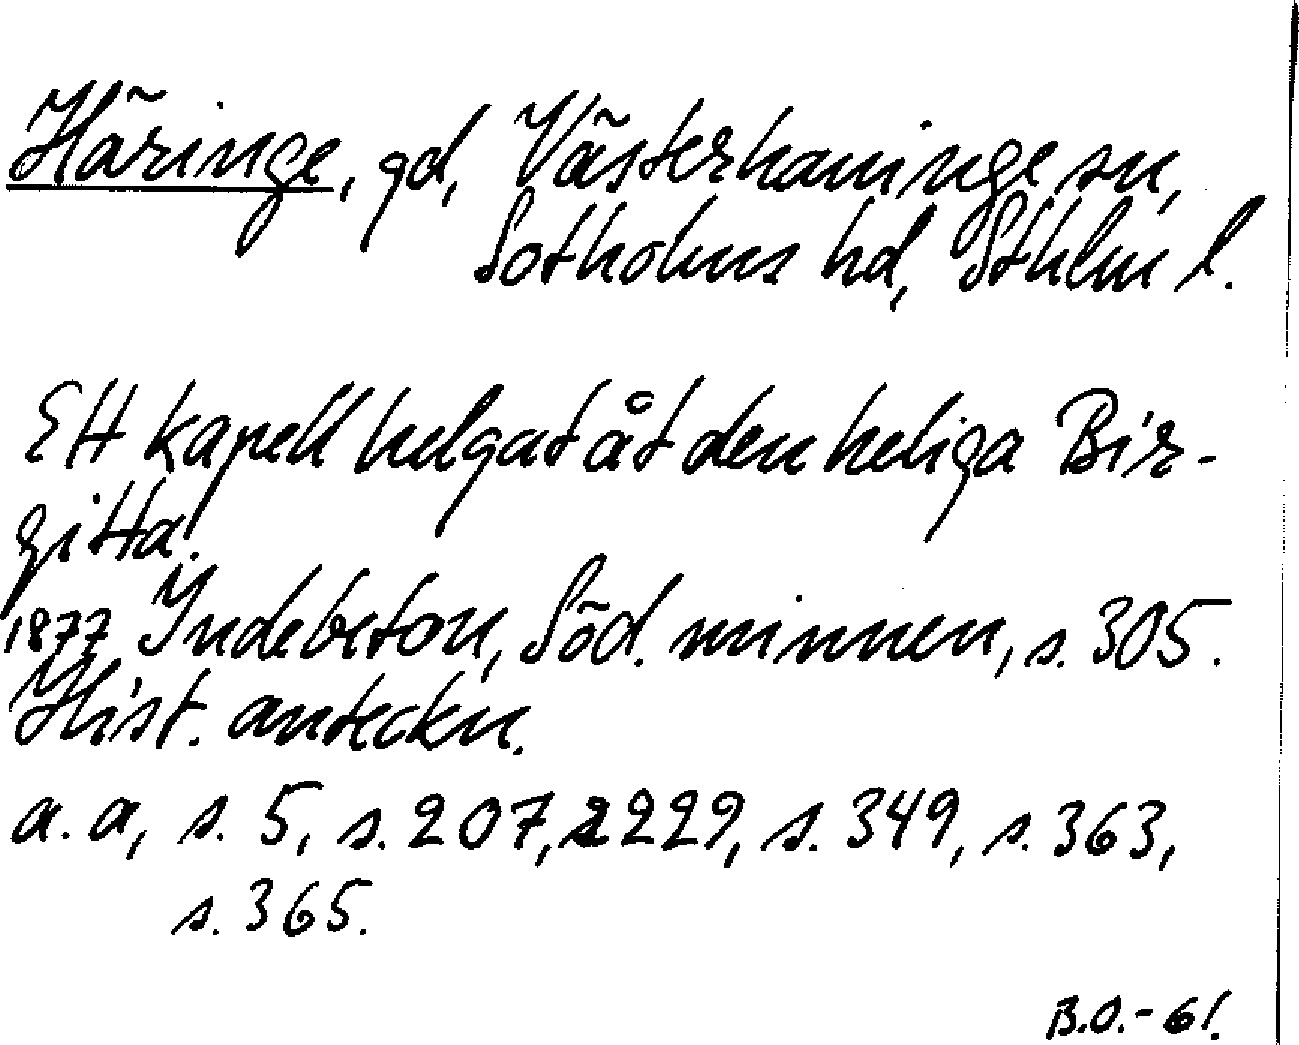 Häringe, gd, Västerhaninge sn,
Sotholms hd, Sthlm l.
Ett kapell helgat åt den heliga Bir-
gitta.
1877 Indebetou, Söd. minnen, s. 305.
Hist. anteckn.
a. a, s. 5, s. 207, s 229, s. 349, s. 363,
s. 365.
B.O.-61.